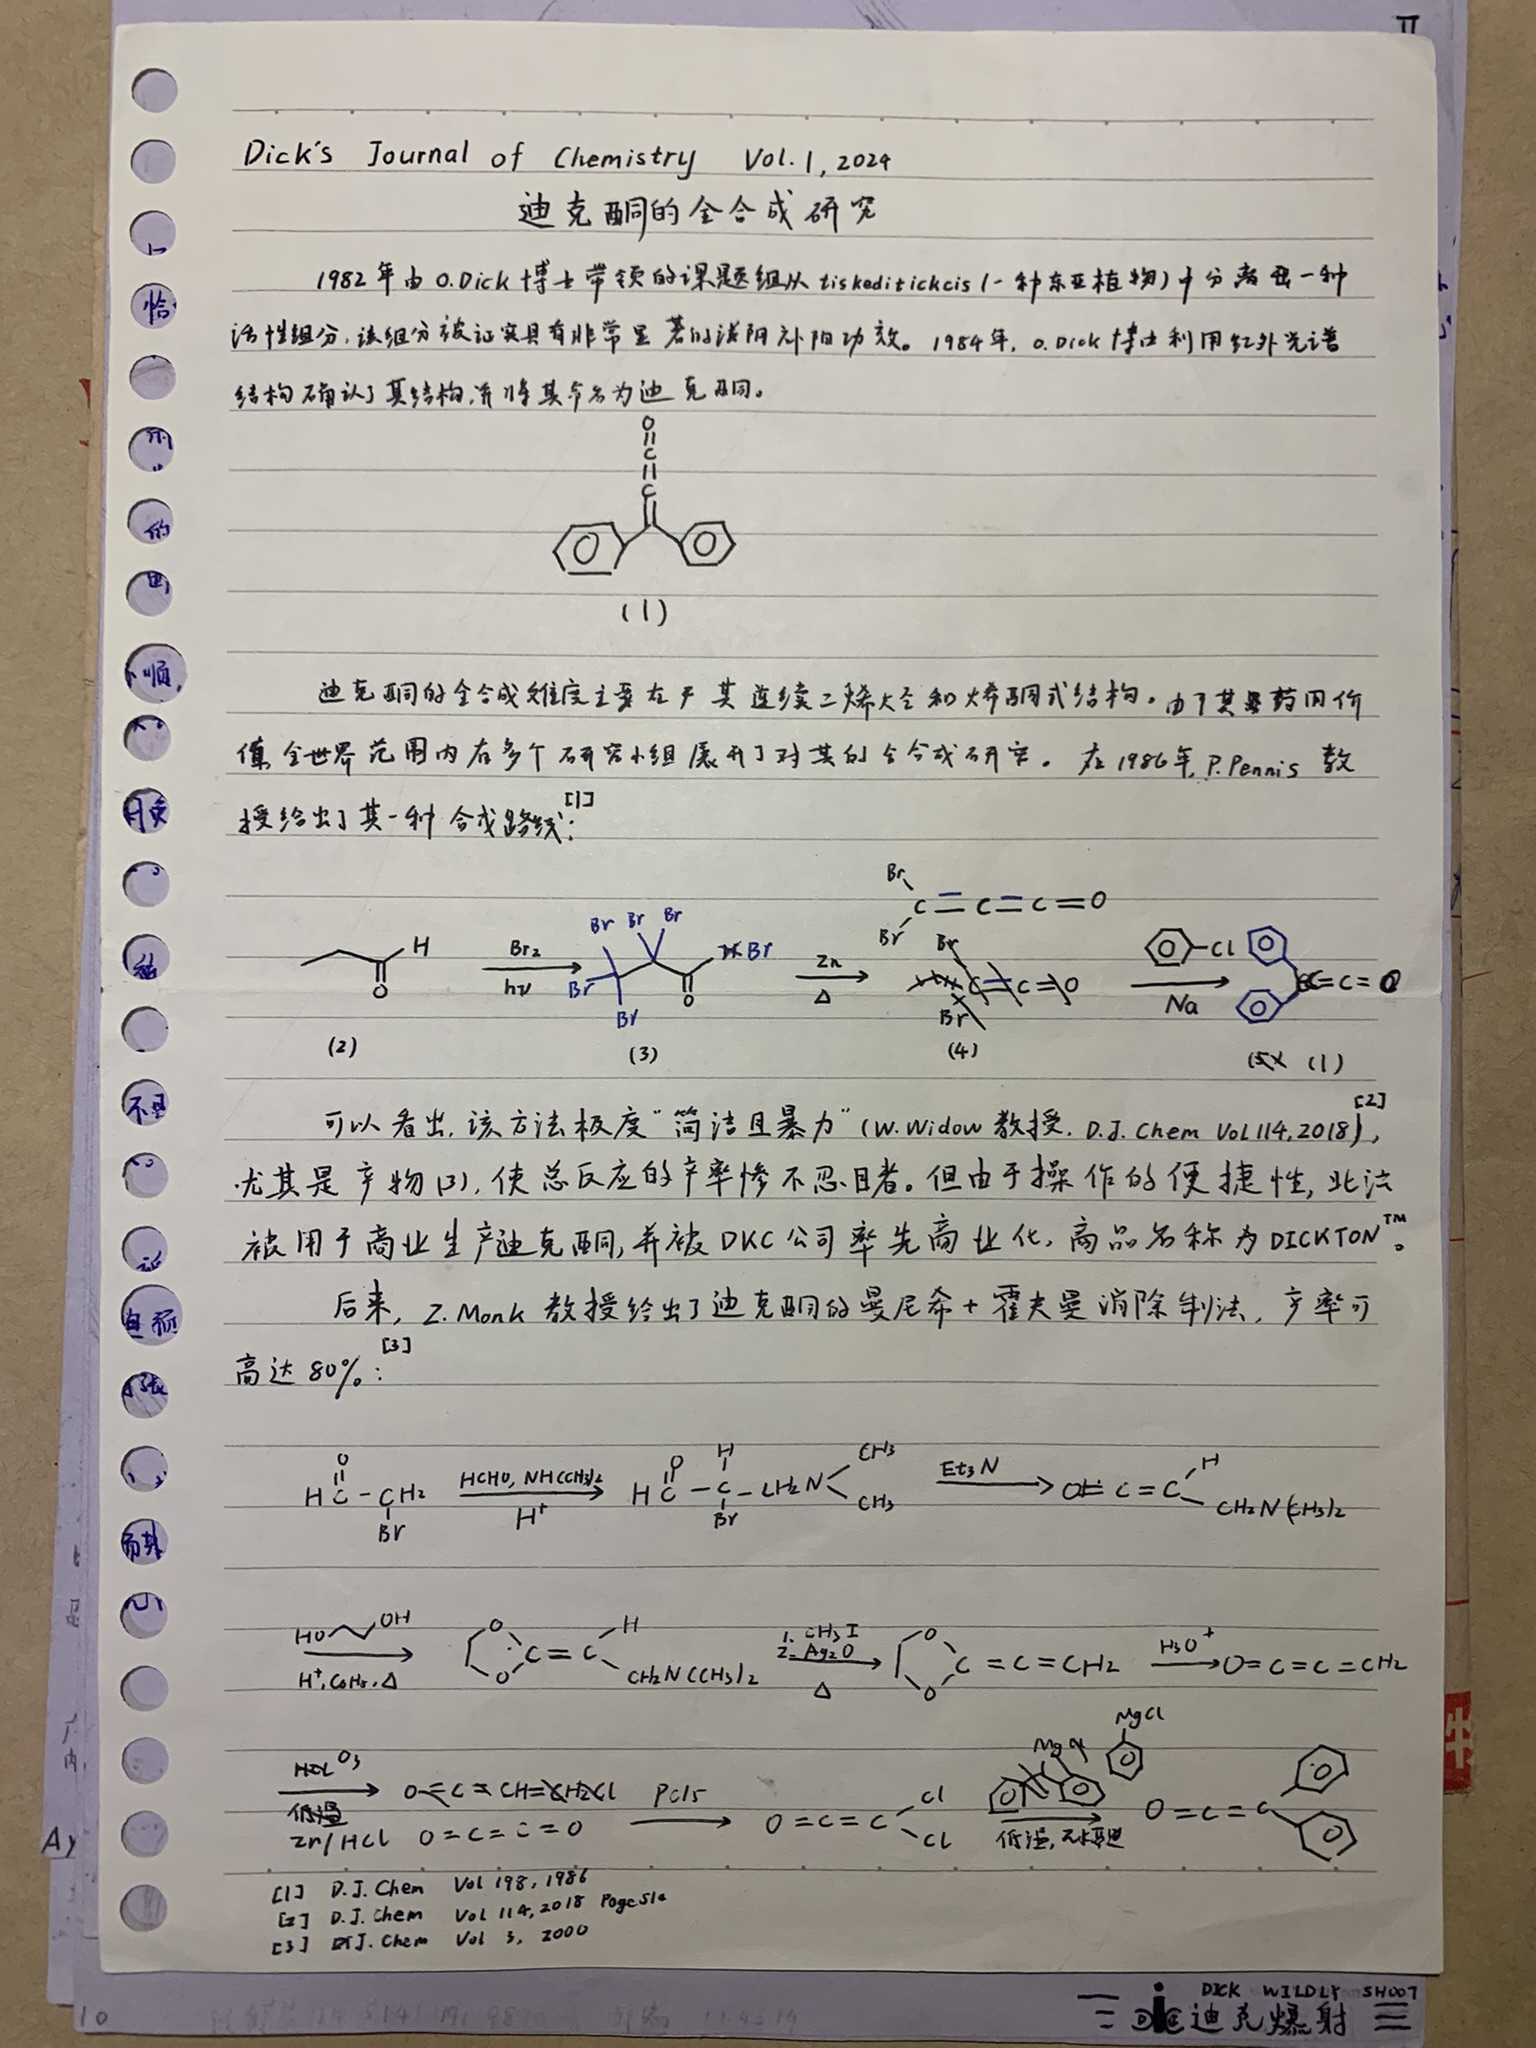 Dick's Journal of Chemistry Vol.1, 2024
迪克酮的全合成研究
1982年由O.Dick博士带领的课题组从tiskeditickcis(一种东亚植物)中分离出一种
活性组分,该组分被证实具有非常显著的滋阴补阳功效。1984年,O.Dick博士利用红外光谱
结构确认了其结构,并将其命名为迪克酮。
O
C
C
(1)
迪克酮的全合成难度主要在于其连续二烯烃和烯酮式结构。由于其药用价
值全世界范围内有多个研究小组展开了对其的全合成研究。在1986年,P.Pennis教
授给出了其一种合成路线[1]:
Br
Br C=C=C=O
H O Br2 hν Br Br Br Br Br Br O Zn Δ Br Br C=C=O Cl Na C=C=O
(2) (3) (4) (1)
可以看出,该方法极度"简洁且暴力"(W.Widow教授, D.J.Chem Vol 114,2018)[2],
尤其是产物(3),使总反应的产率惨不忍目睹。但由于操作的便捷性,此法
被用于商业生产迪克酮,并被DKC公司率先商业化,商品名称为DICKTON™。
后来,Z.Monk教授给出了迪克酮的曼尼希+霍夫曼消除制法,产率可
高达80%[3]:
O HC-CH2 Br HCHO, NH(CH3)2 H+ O HC-C-CH2N H Br CH3 CH3 Et3N O=C=C H CH2N(CH3)2
HO OH H+, C6H6, Δ O O C=C H CH2N(CH3)2 1. CH3I 2. Ag2O Δ O O C=C=CH2 H3O+ O=C=C=CH2
O3 低温 Zn/HCl O=C=C=O PCl5 O=C=C Cl Cl MgCl 低温, O=C=C
[1] D.J.Chem Vol 198, 1986
[2] D.J.Chem Vol 114, 2018 Page 514
[3] D.J.Chem Vol 3, 2000
DICK WILDLY SHOOT
迪克爆射
10